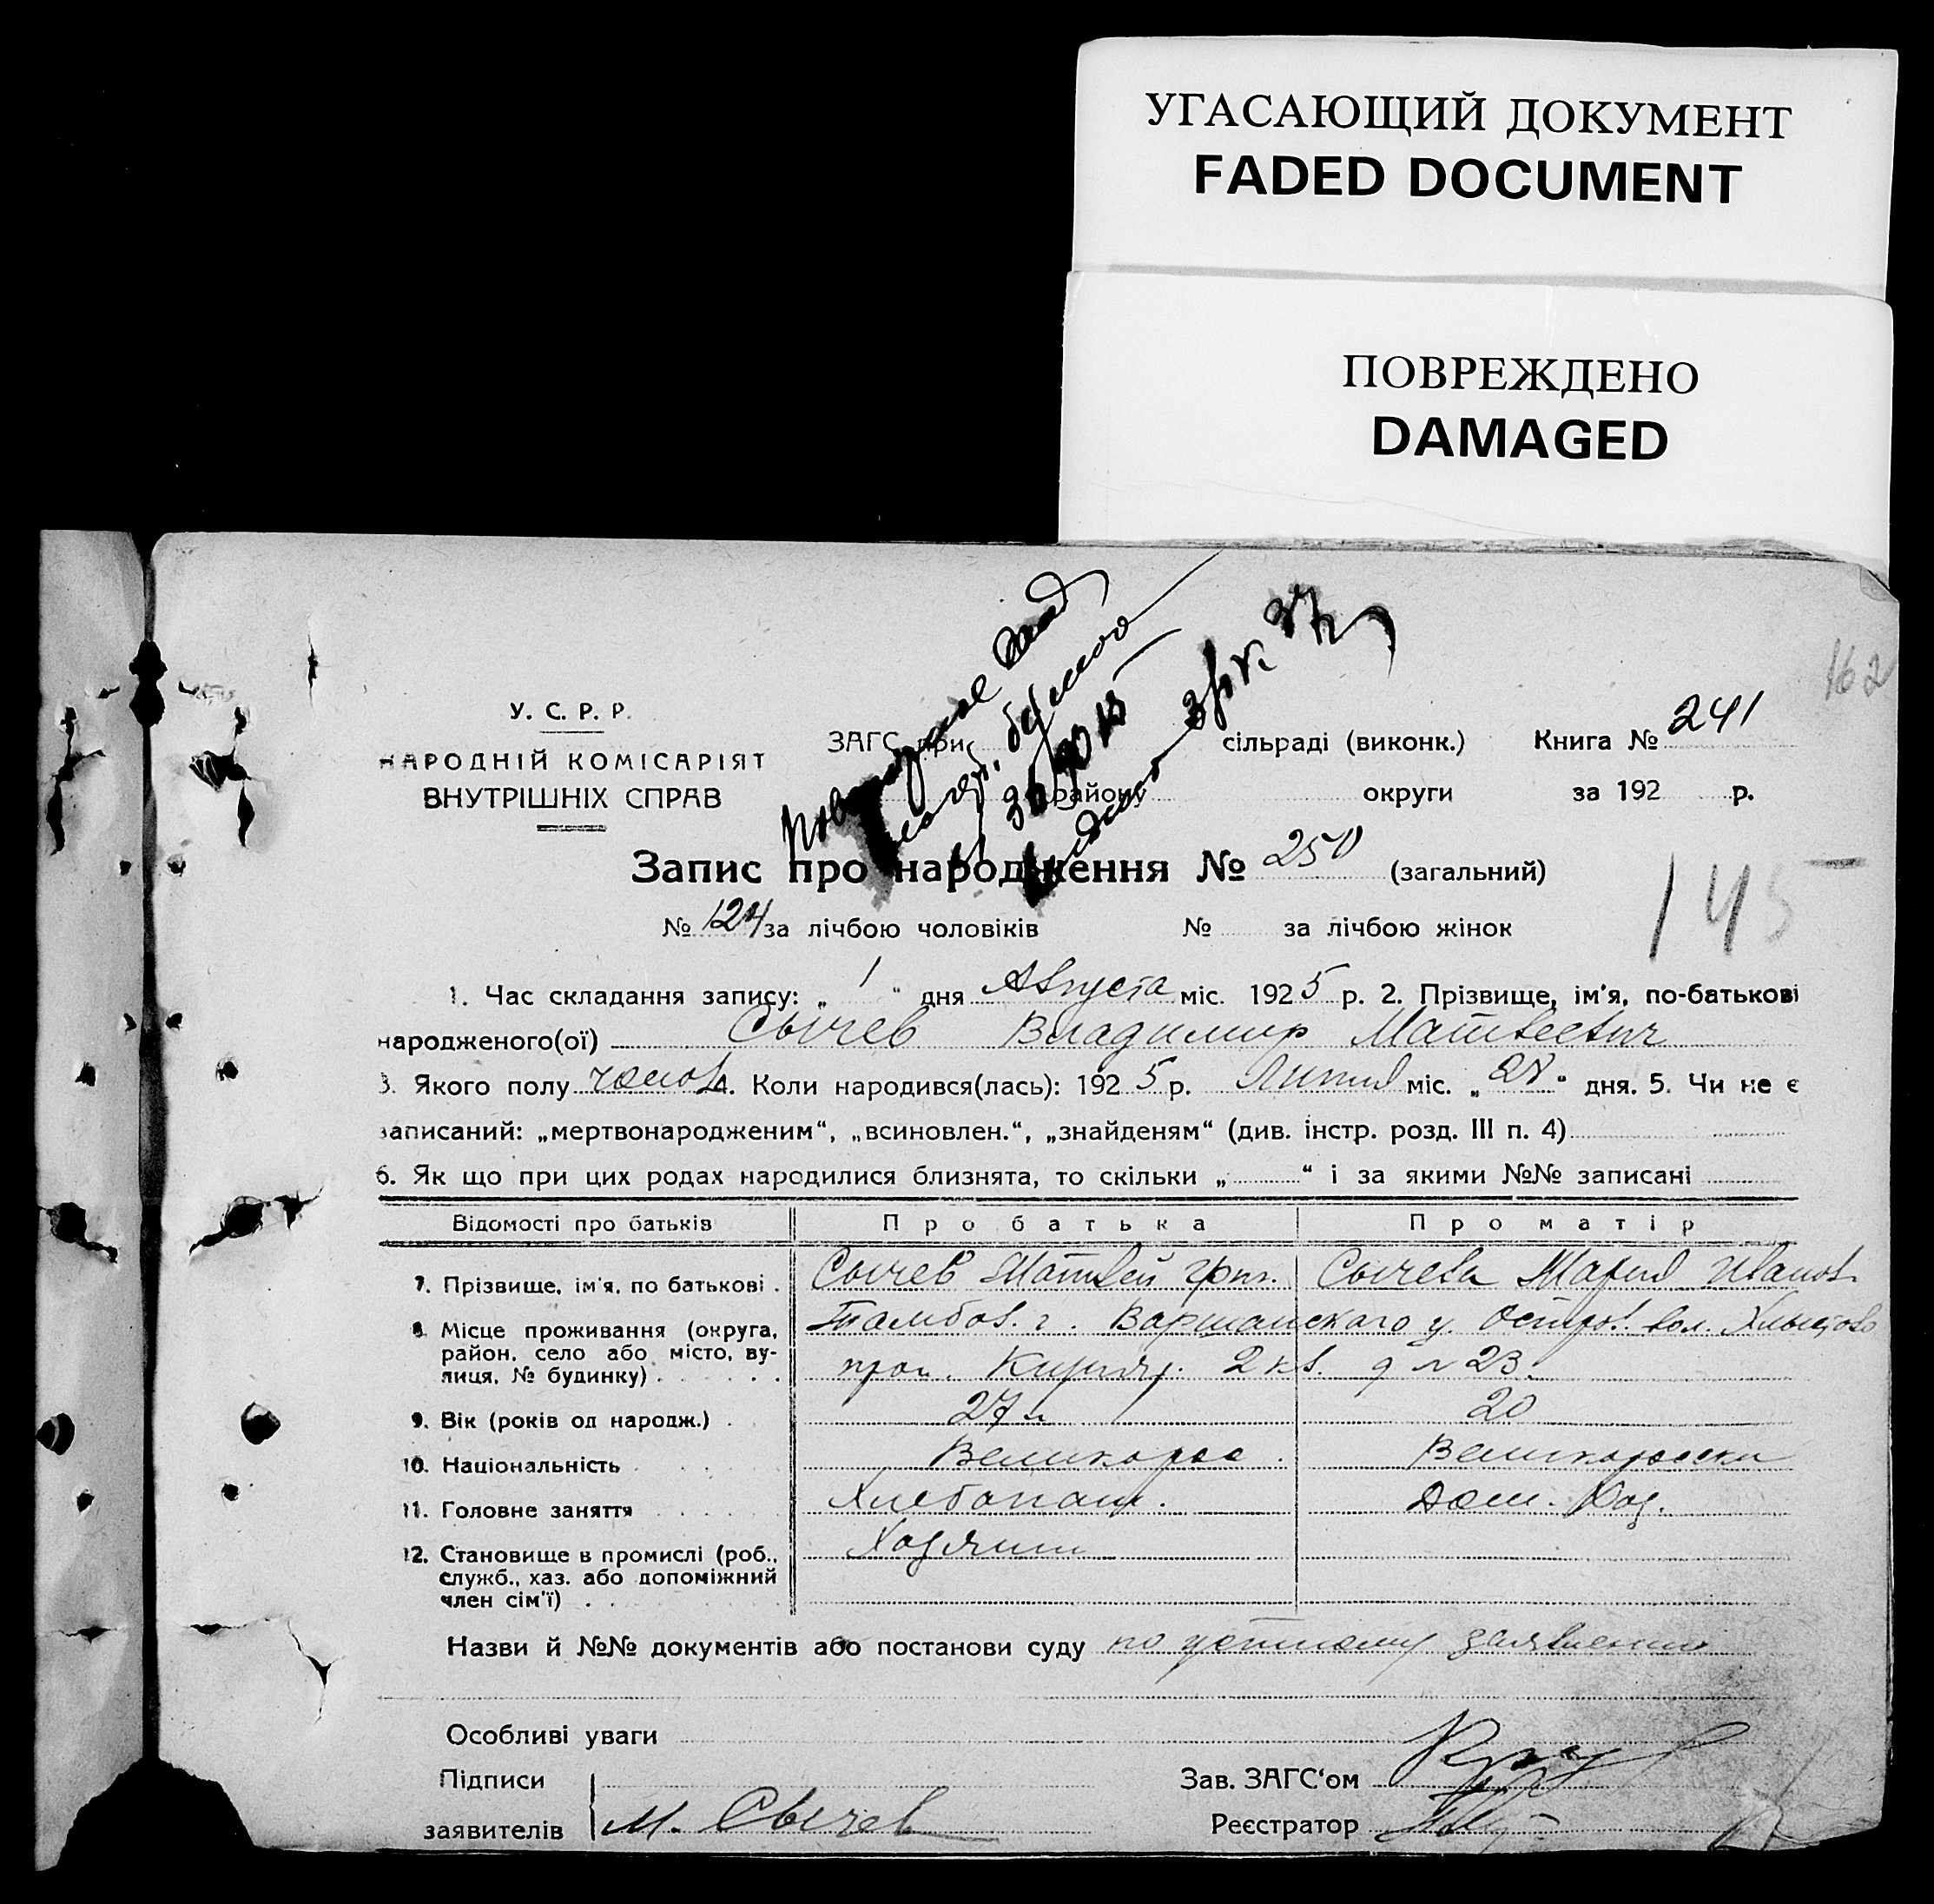 УГАСАЮЩИЙ ДОКУМЕНТ
FADED DOCUMENT
ПОВРЕЖДЕНО
DAMAGED
162
У. С. Р. Р.
НАРОДНІЙ КОМІСАРІЯТ
ВНУТРІШНІХ СПРАВ
ЗАГС при сільраді (виконк.) Книга № 241
району округи за 192 р.
Запис про народження № 250 (загальний)
№ 124 за лічбою чоловіків № за лічбою жінок
145
1. Час складання запису: „ 1 “ дня Августа міс. 1925 р. 2. Прізвище, ім'я, по-батькові
народженого(ої) Сычев Владимир Матвеевич
3. Якого полу чолов 4. Коли народився(лась): 1925 р. Липня міс. „ 28 “ дня. 5. Чи не є
записаний: „мертвонародженим“, „всиновлен.“, „знайденям“ (див. інстр. розд. III п. 4)
6. Як що при цих родах народилися близнята, то скільки „ “ і за якими №№ записані
Відомості про батьків Про батька Про матір
7. Прізвище, ім'я, по батькові . Сычев Матвей Сычева Мария Иванов.
8. Місце проживання (округа, район, село або місто, вулиця, № будинку) Тамбов. г. у. вол.
2 кв. д № 23.
9. Вік (років од народж.) 27 л 20
10. Національність Великоросс. Великоросска
11. Головне заняття Хлебопаш. Дом. Хоз.
12. Становище в промислі (роб., служб., хаз. або допоміжний член сім'ї) Хозяин
Назви й №№ документів або постанови суду по устному заявлению
Особливі уваги
Підписи Зав. ЗАГС‘ом
заявителів М. Сычев Реєстратор